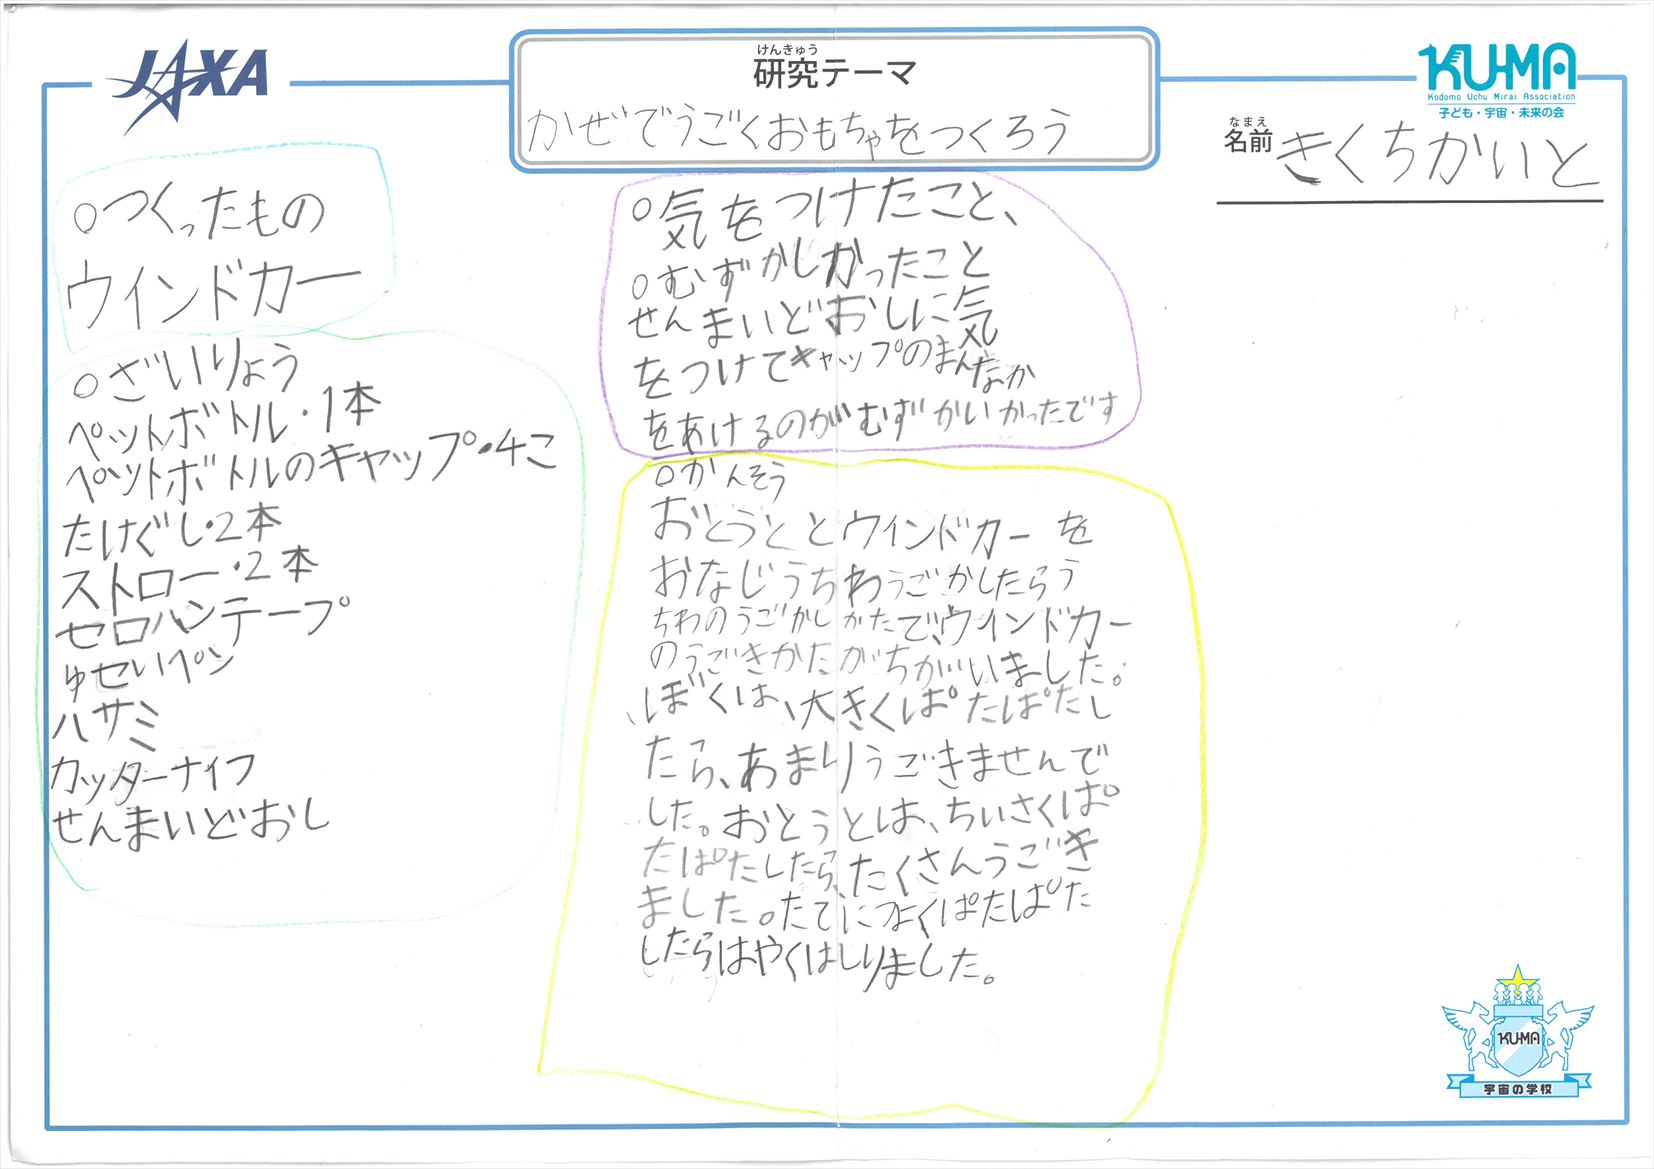 JAXA
けんきゅう
研究テーマ
かぜでうごくおもちゃをつくろう
KUMA
Kodomo Uchu Mirai Association
子ども・宇宙・未来の会
なまえ
名前 きくちかいと
○つくったもの
ウインドカー
○ざいりょう
ペットボトル・1本
ペットボトルのキャップ・4こ
たけぐし・2本
ストロー・2本
セロハンテープ
ゆせいペン
ハサミ
カッターナイフ
せんまいどおし
○気をつけたこと、
○むずかしかったこと
せんまいどおしに気
をつけてキャップのまんなか
をあけるのがむずかいかったです
○かんそう
おとうととウインドカーを
おなじうちわうごかしたらう
ちわのうごかしかたで、ウインドカー
のうごきかたがちがいました。
ぼくは、大きくぱたぱたし
たら、あまりうごきませんで
した。おとうとは、ちいさくぱ
たぱたしたら、たくさんうごき
ました。たてによくぱたぱた
したらはやくはしりました。
KUMA
宇宙の学校